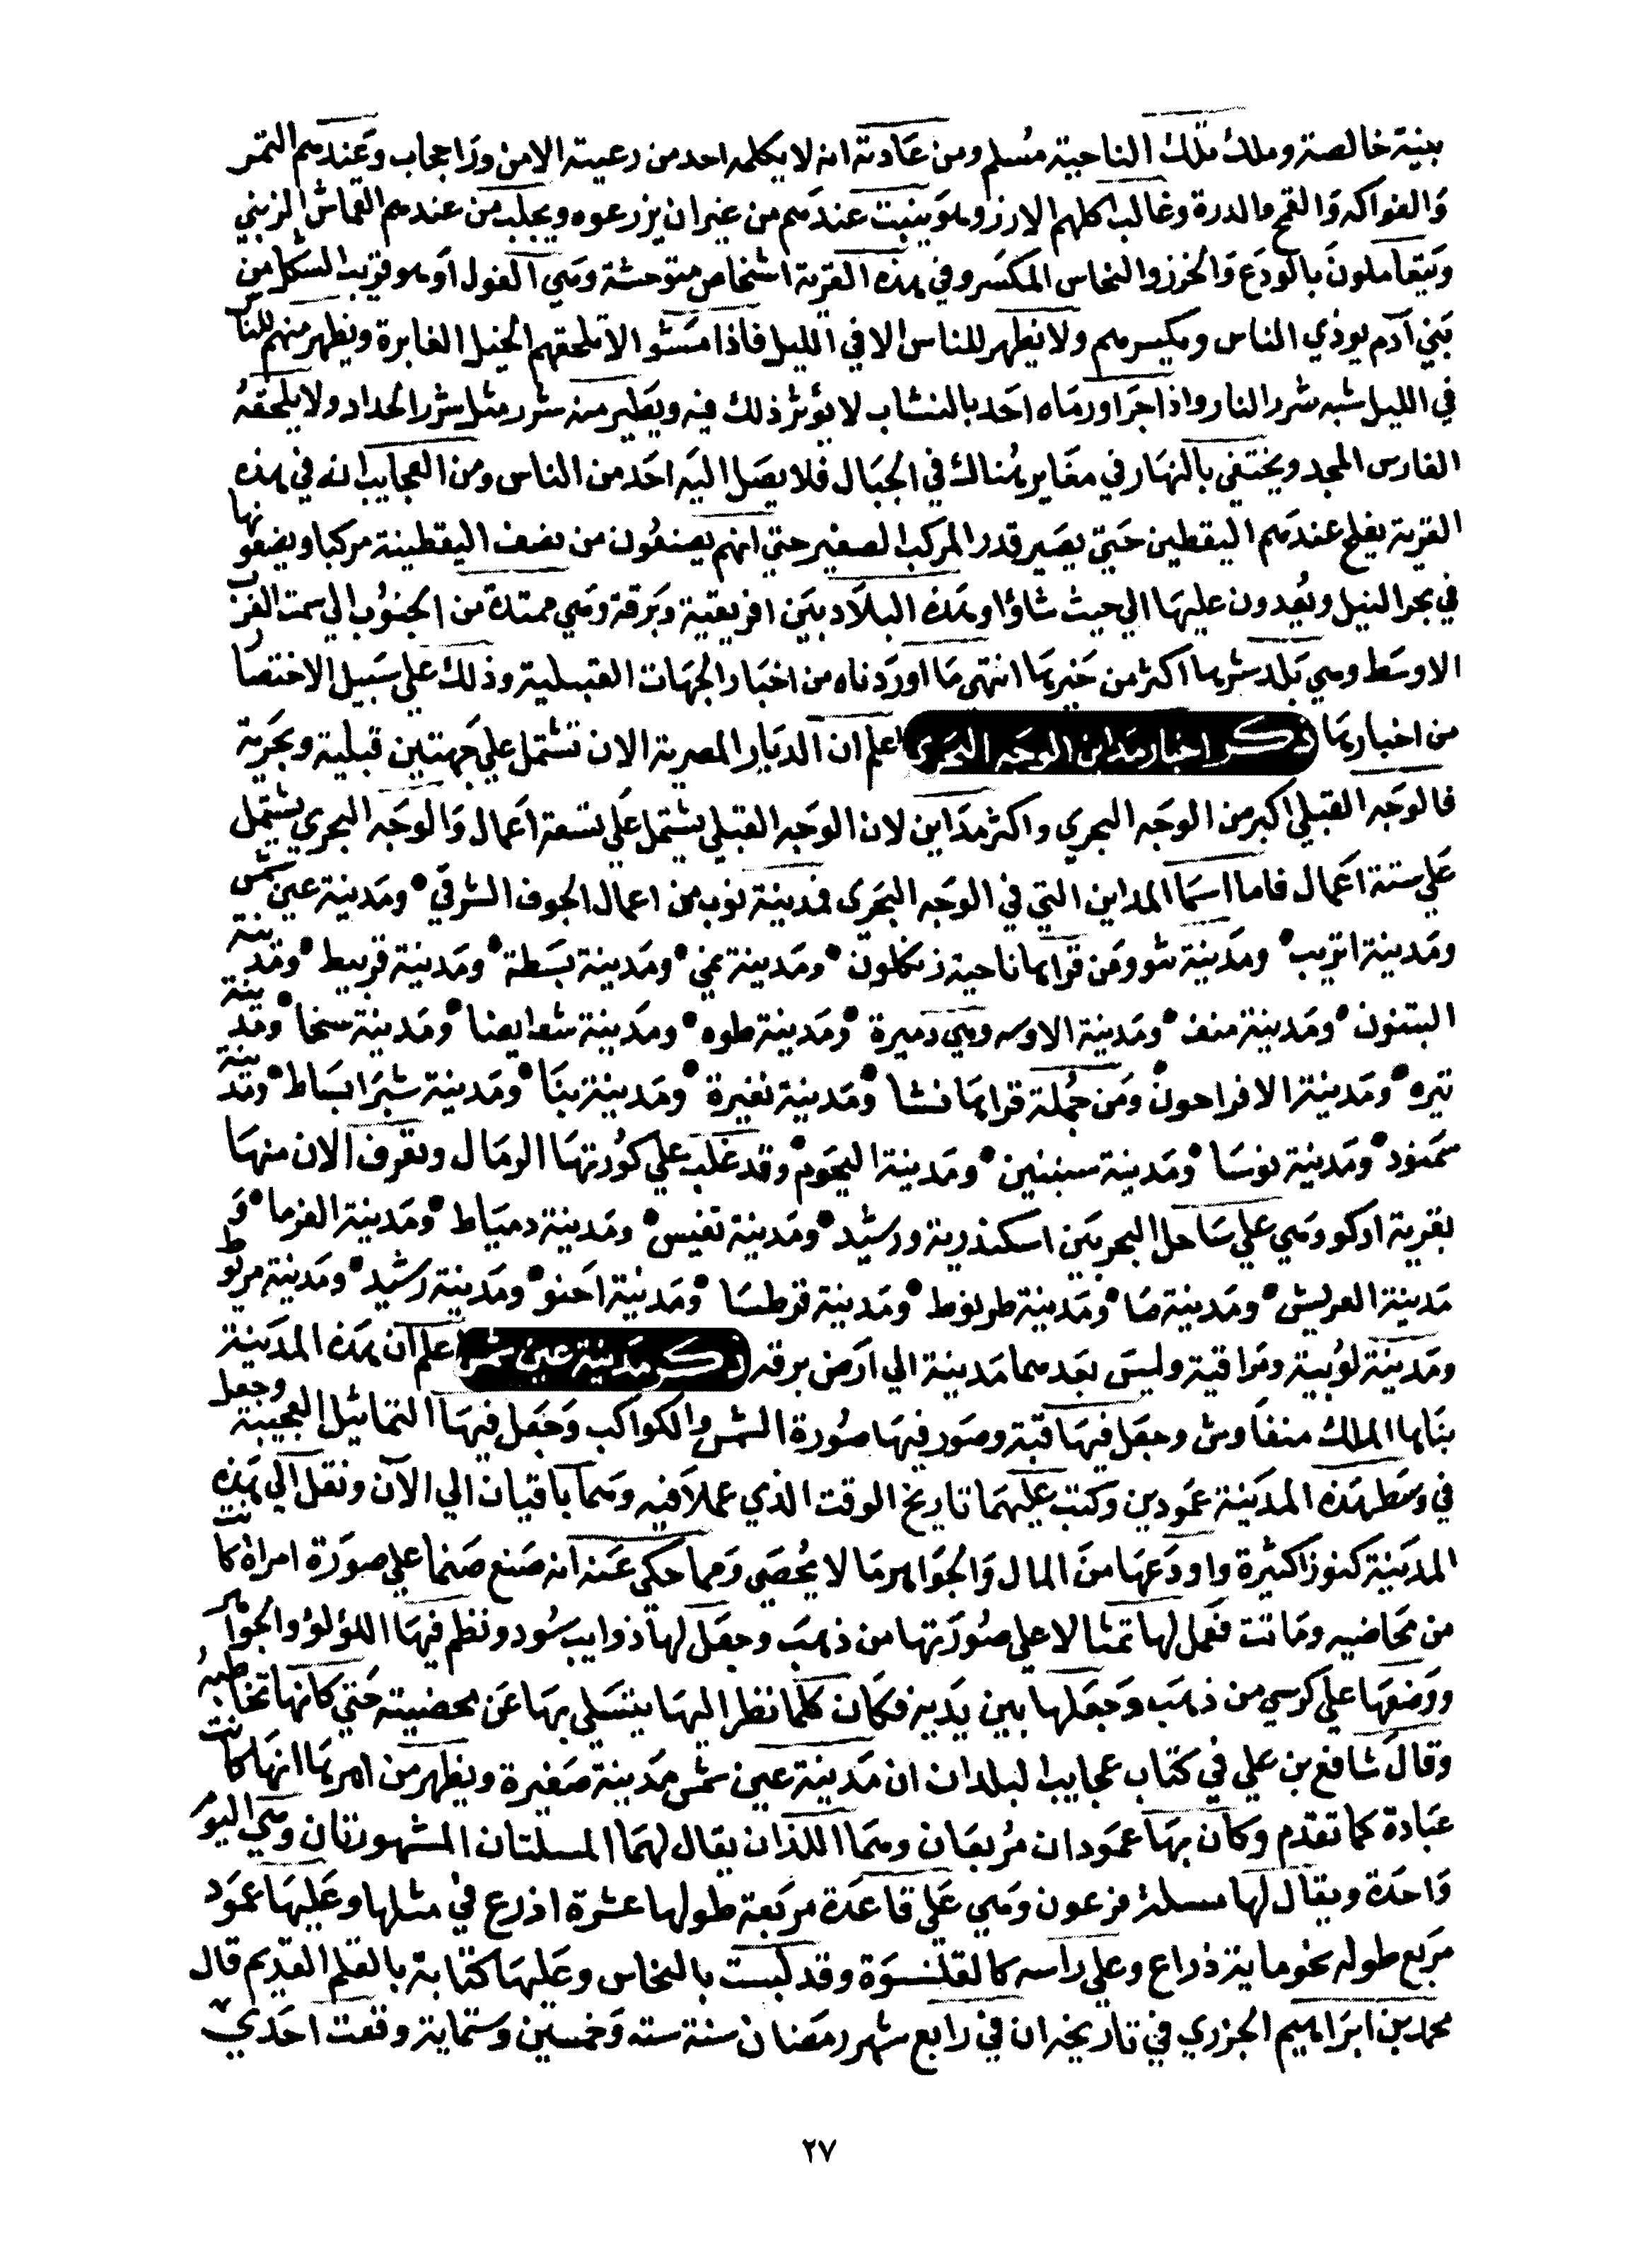 بنية خالصة وملك تلك الناحية مسلم ومن عادته انه لا يكلمه احد من رعيته الا من ورا حجاب وعندهم التمر
والفواكه والقمح والدرة وغالب اكلهم الارز وهو ينبت عندهم من غير ان يزرعوه ويجلب من عندهم القماش الزيني
ويتعاملون بالودع والخرز والنحاس المكسر وفي هذه القرية اشخاص متوحشة وهي الغول او هو قريب الشكل من
بني آدم يوذي الناس ويكبسهم ولا يظهر للناس الا في الليل فاذا مشوا لا تلحقهم الخيل الغابرة ويظهر منهم للناس
في الليل شبه شرر النار واذا جرا ورماه احد بالنشاب لا يؤثر ذلك فيه ويطير منه شرر مثل شرر الحداد ولا يلحقه
الفارس المجد ويختفي بالنهار في مغاير هناك في الجبال فلا يصل اليه احد من الناس ومن العجايب انه في هذه
القرية يفلح عندهم اليقطين حتي يصير قدر المركب الصغير حتي انهم يصنعون من نصف اليقطينة مركبا ويضعونها
في بحر النيل ويعدون عليها الي حيث شاؤا وهذه البلاد بين افريقية وبرقة وهي ممتدة من الجنوب الي سمت الغرب
الاوسط وهي بلد شرها اكثر من خيرها انتهى ما اوردناه من اخبار الجهات القبلية وذلك علي سبيل الاختصار
من اخبارها ذكر اخبار مداين الوجه البحري اعلم ان الديار المصرية الان تشتمل علي جهتين قبلية وبحرية
فالوجه القبلي اكبر من الوجه البحري واكثر مداين لان الوجه القبلي يشتمل علي تسعة اعمال والوجه البحري يشتمل
علي ستة اعمال فاما اسما المداين التي في الوجه البحرى فمدينة نوب من اعمال الجوف الشرقي ومدينة عين شمس
ومدينة اتريب ومدينة تنو ومن قراها ناحية زنكلون ومدينة نمي ومدينة بسطة ومدينة قربيط ومدينة
البتنون ومدينة منف ومدينة الاوسه وهي دميرة ومدينة طوه ومدينة شعايضا ومدينة سخا ومدينة
تيره ومدينة الافراحون ومن جملة قراها نشا ومدينة نغيرة ومدينة ببنا ومدينة شبرا بساط ومدينة
سمنود ومدينة نوسا ومدينة سبنين ومدينة البجوم وقد غلب علي كورتها الرمال وتعرف الان منها
بقرية ادكو وهي علي ساحل البحر بين اسكندرية ورشيد ومدينة تنيس ومدينة دمياط ومدينة الفرما و
مدينة العريش ومدينة صا ومدينة طرنوط ومدينة قرطسا ومدينة احنو ومدينة رشيد ومدينة مريوط
ومدينة لوبية ومراقية وليس بعدهما مدينة الي ارض برقه ذكر مدينة عين شمس اعلم ان هذه المدينة
بناها الملك منقاوش وجعل فيها قبة وصور فيها صورة الشمس والكواكب وجعل فيها التماثيل العجيبة وجعل
في وسط هذه المدينة عمودين وكتب عليهما تاريخ الوقت الذي عملا فيه وهما باقيان الي الآن ونقل الي هذه
المدينة كنوزا كثيرة واودعها من المال والجواهر ما لا يحصي ومما حكي عنه انه صنع صنما علي صورة امراة كانت
من محاضيه وماتت فعمل لها تمثالا علي صورتها من ذهب وجعل لها ذوايب سود ونظم فيها اللؤلؤ والجواهر
ووضعها علي كرسي من ذهب وجعلها بين يديه فكان كلما نظر اليها يتسلي بها عن محضيته حتي كانها تخاطبه
وقال شافع بن علي في كتاب عجايب البلدان ان مدينة عين شمس مدينة صغيرة ويظهر من امرها انها كانت
عبادة كما تقدم وكان بها عمودان مربعان وهما اللذان يقال لهما المسلتان المشهورتان وهي اليوم
واحدة ويقال لها مسلة فرعون وهي علي قاعدة مربعة طولها عشرة اذرع في مثلها وعليها عمود
مربع طوله نحو ماية ذراع وعلي راسه كالقلنسوة وقد لبست بالنحاس وعليها كتابة بالقلم القديم قال
محمد بن ابراهيم الجزري في تاريخه ان في رابع شهر رمضان سنة سته وخمسين وستماية وقعت احدي
٢٧